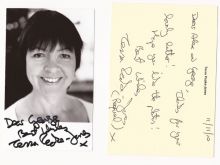 Dear George
Best Wishes
Teresa Peake-Jones
x
Teresa Peake-Jones
11/11/10
Dear and George,
Thanks for your
lovely letter!
Hope you like the photo!
Best Wishes,
Teresa Peake-Jones
(Raquel) x